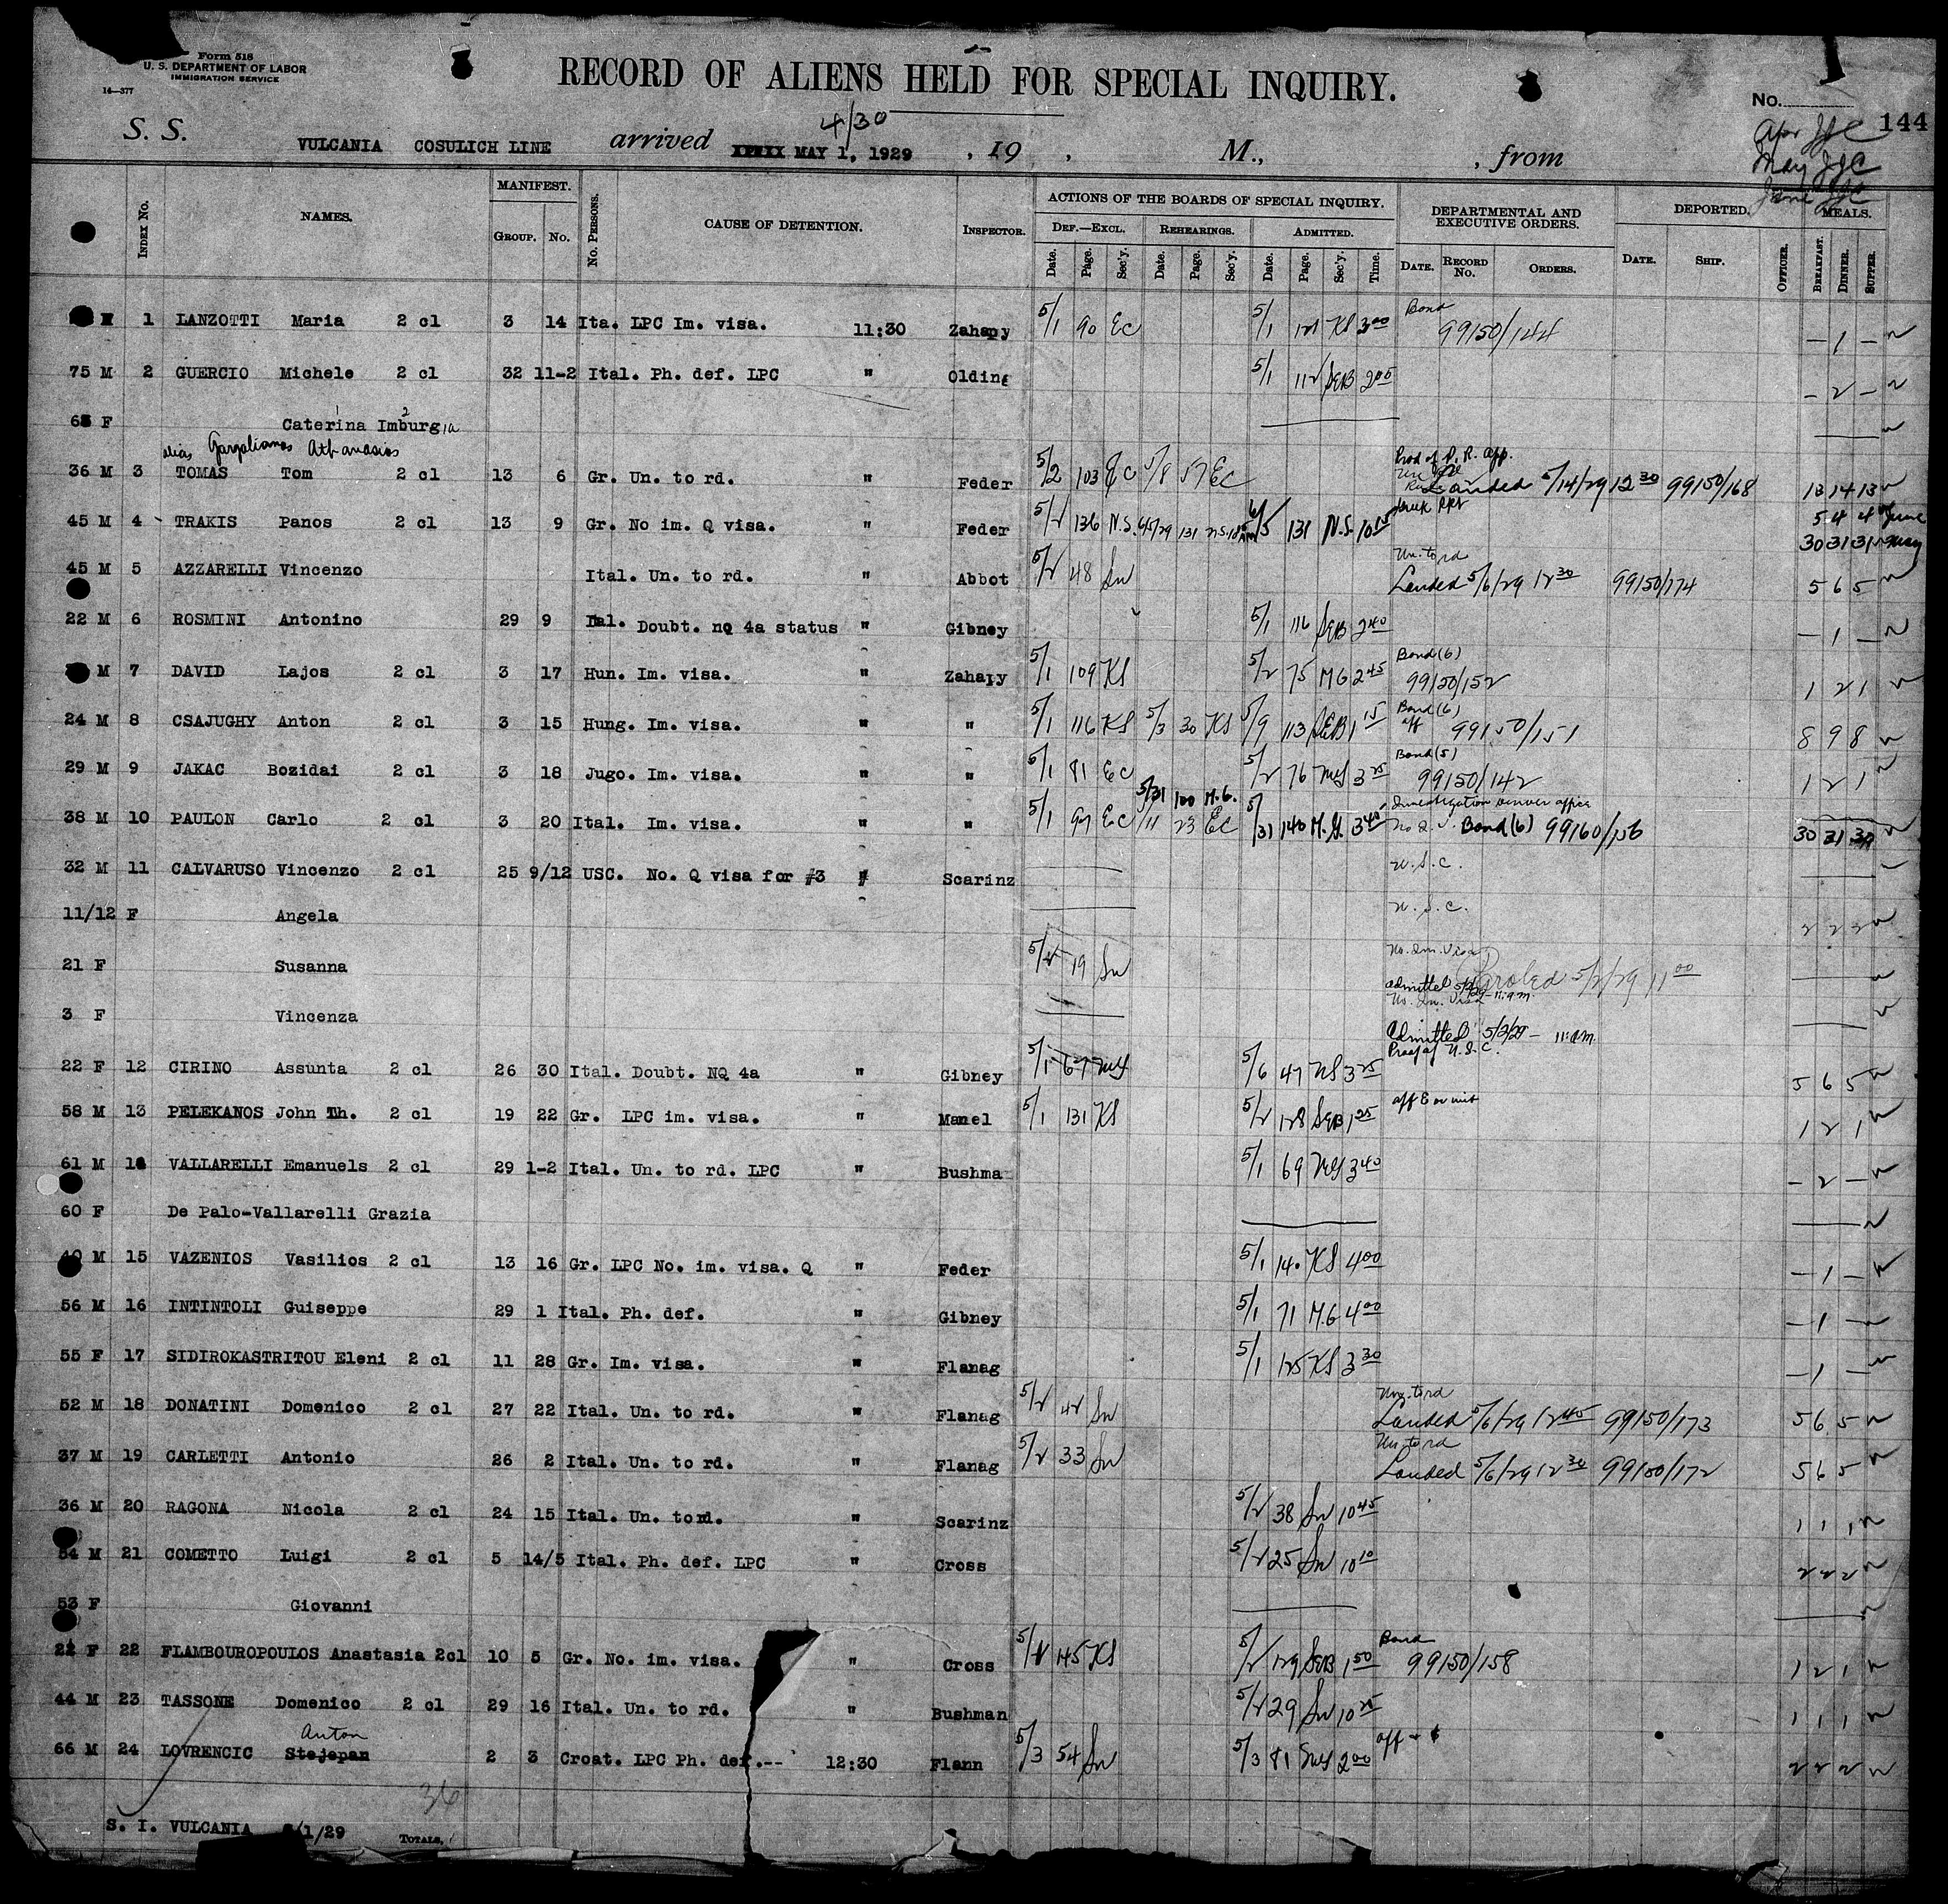 Form 518
U. S. DEPARTMENT OF LABOR
IMMIGRATION SERVICE
14—377
RECORD OF ALIENS HELD FOR SPECIAL INQUIRY.
No.
144
4/30
S. S. VULCANIA COSULICH LINE arrived MAY 1, 1929 , 19 , M., , from
INDEX No. NAMES. MANIFEST. GROUP. No. No. PERSONS. CAUSE OF DETENTION. INSPECTOR. ACTIONS OF THE BOARDS OF SPECIAL INQUIRY. DEPARTMENTAL AND EXECUTIVE ORDERS. DEPORTED. MEALS.
DEF.—EXCL. REHEARINGS. ADMITTED.
Date. Page. Sec'y. Date. Page. Sec'y. Date. Page. Sec'y. Time. DATE. RECORD No. ORDERS. DATE. SHIP. OFFICER. BREAKFAST. DINNER. SUPPER.
1 LANZOTTI Maria 2 cl 3 14 Ita. LPC Im. visa. 11:30 Zahapy 5/1 90 EC 5/1 KS 3 00 Bond 99150/144 – 1 –
75 M 2 GUERCIO Michele 2 cl 32 11-2 Ital. Ph. def. LPC " Olding 5/1 112 SEB – 2 –
F Caterina Imburgia
alias Gargalianos Athanasios
36 M 3 TOMAS Tom 2 cl 13 6 Gr. Un. to rd. " Feder 5/2 103 EC 5/8 57 EC Landed 5/14/29 12 30 99150/168 13 14 13
45 M 4 TRAKIS Panos 2 cl 13 9 Gr. No im. Q visa. " Feder 5/2 136 N.S. 131 6/5 131 N.S. 5 4 4 June
30 31 31 May
45 M 5 AZZARELLI Vincenzo Ital. Un. to rd. " Abbot 5/2 48 Sw Un. to rd Landed 5/6/29 12 30 99150/174 5 6 5
22 M 6 ROSMINI Antonino 29 9 Ital. Doubt. nQ 4a status " Gibney 5/1 116 SEB 2 40 – 1 –
M 7 DAVID Lajos 2 cl 3 17 Hun. Im. visa. " Zahapy 5/1 109 KS 5/2 75 MG 2 45 Bond (6) 99150/152 1 2 1
24 M 8 CSAJUGHY Anton 2 cl 3 15 Hung. Im. visa. " " 5/1 116 KS 5/3 30 KS 5/9 113 SEB 1 15 Bond (6) aff 99150/151 8 9 8
29 M 9 JAKAC Bozidai 2 cl 3 18 Jugo. Im. visa. " " 5/1 81 EC 5/2 76 3 25 Bond (5) 99150/142 1 2 1
5/31 100 M.G.
38 M 10 PAULON Carlo 2 cl 3 20 Ital. Im. visa. " " 5/1 97 EC 23 EC 5/31 140 M.G. 3 40 Bond (6) 99160/156 30 31 30
32 M 11 CALVARUSO Vincenzo 2 cl 25 9/12 USC. No. Q visa for #3 " Scarinz U.S.C.
11/12 F Angela U.S.C. 2 2 2
21 F Susanna 19 Sw No. Im. Visa Paroled 5/2/29 11 00
3 F Vincenza Admitted 5/2/29 – 11 am
22 F 12 CIRINO Assunta 2 cl 26 30 Ital. Doubt. NQ 4a " Gibney 5/1 67 5/6 47 NS 3 25 Proof of U.S.C. 5 6 5
58 M 13 PELEKANOS John Th. 2 cl 19 22 Gr. LPC im. visa. " Manel 5/1 131 KS 5/2 128 SEB 1 25 1 2 1
61 M 14 VALLARELLI Emanuels 2 cl 29 1-2 Ital. Un. to rd. LPC " Bushma 5/1 69 3 40 – 2 –
60 F De Palo-Vallarelli Grazia
40 M 15 VAZENIOS Vasilios 2 cl 13 16 Gr. LPC No. im. visa. Q " Feder 5/1 KS 4 00 – 1 –
56 M 16 INTINTOLI Guiseppe 29 1 Ital. Ph. def. " Gibney 5/1 71 M.G 4 00 – 1 –
55 F 17 SIDIROKASTRITOU Eleni 2 cl 11 28 Gr. Im. visa. " Flanag 5/1 125 KS 3 30 – 1 –
52 M 18 DONATINI Domenico 2 cl 27 22 Ital. Un. to rd. " Flanag 5/2 42 Sw Un. to rd Landed 5/6/29 12 45 99150/173 5 6 5
37 M 19 CARLETTI Antonio 26 2 Ital. Un. to rd. " Flanag 5/2 33 Sw Un. to rd Landed 5/6/29 12 30 99150/172 5 6 5
36 M 20 RAGONA Nicola 2 cl 24 15 Ital. Un. to rd. " Scarinz 5/2 38 Sw 10 45 1 1 1
54 M 21 COMETTO Luigi 2 cl 5 14/5 Ital. Ph. def. LPC " Cross 5/2 25 Sw 10 10 2 2 2
53 F Giovanni
22 F 22 FLAMBOUROPOULOS Anastasia 2cl 10 5 Gr. No. im. visa. " Cross 145 KS 5/2 129 SEB 1 50 Bond 99150/158 1 2 1
44 M 23 TASSONE Domenico 2 cl 29 16 Ital. Un. to rd. " Bushman 5/2 29 Sw 10 25 1 1 1
Anton
66 M 24 LOVRENCIC Stejepan 2 3 Croat. LPC Ph. def.-- 12:30 Flann 5/3 54 Sw 5/3 81 2 00 2 2 2
36
S. I. VULCANIA 5/1/29 TOTALS,